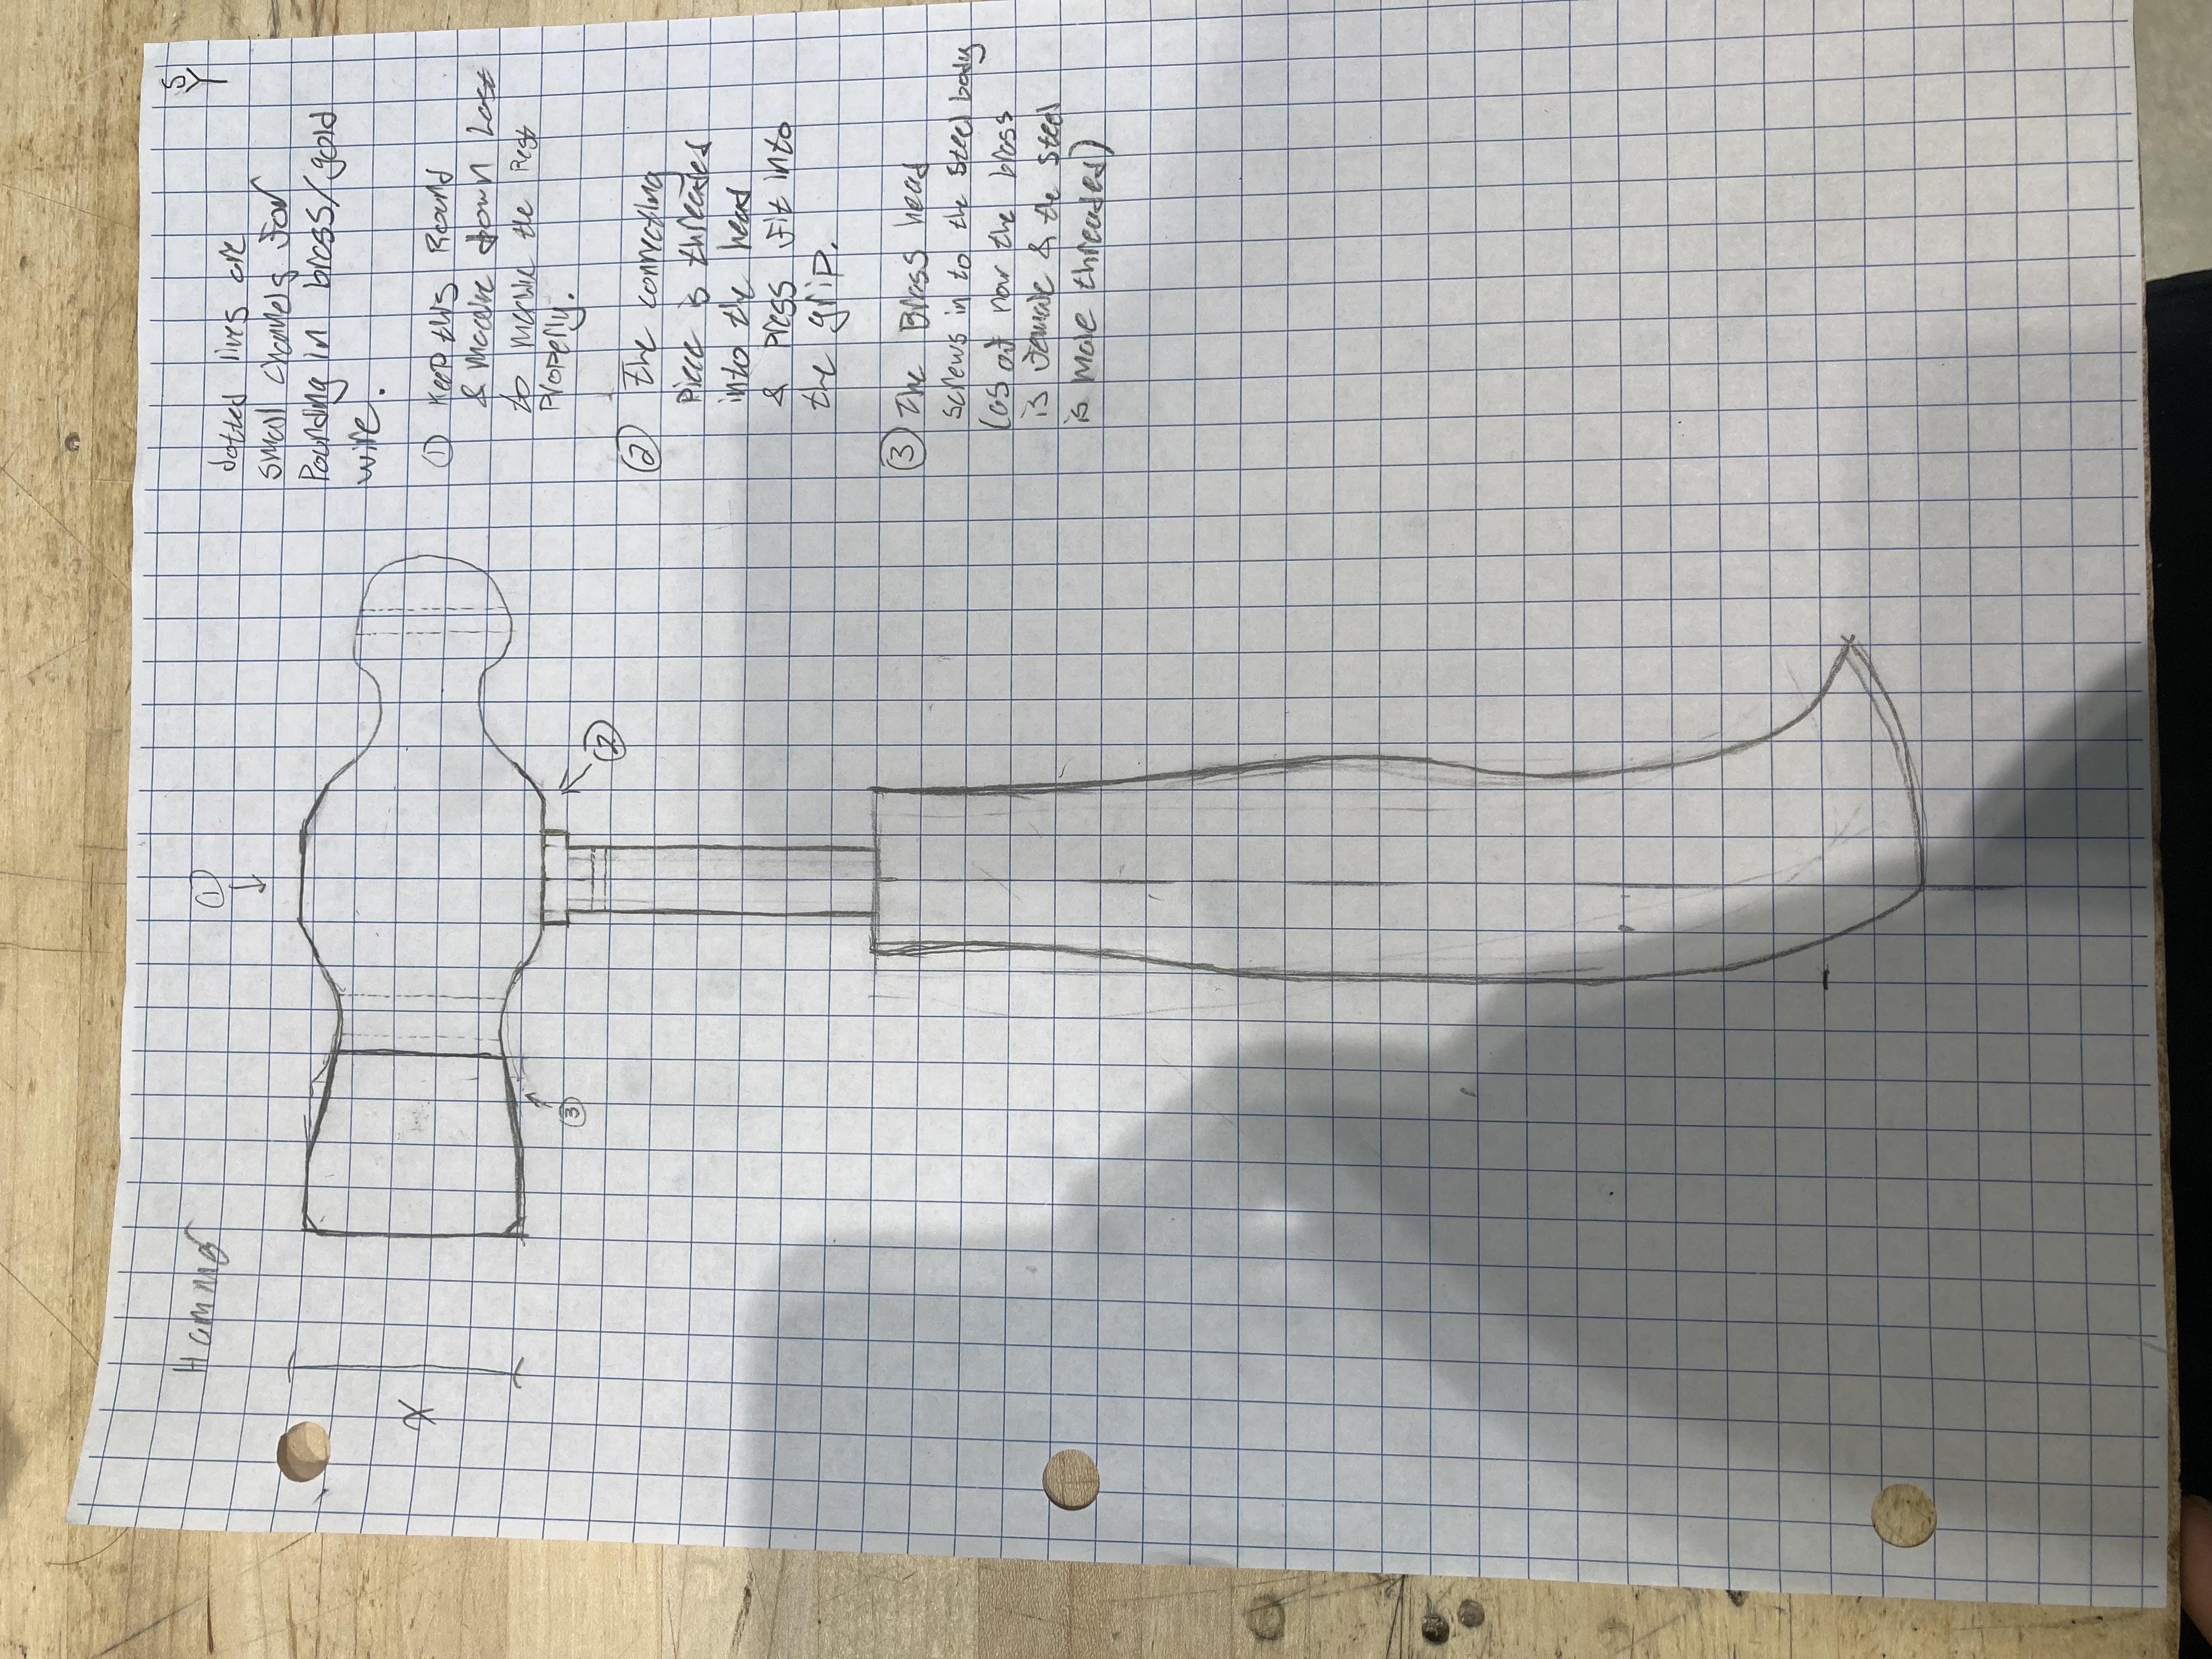 Hammer
S
Y
①
X
③
②
dotted lines are
small channels For
Pounding in brass/gold
wire.
① Keep this Round
& Machine down Last
to machine the Rest
Properly.
② The connecting
Piece is threaded
into the head
& Press Fit into
the grip.
③ The Brass head
screws in to the steel body
(as of now the brass
is Female & the steel
is male threaded)